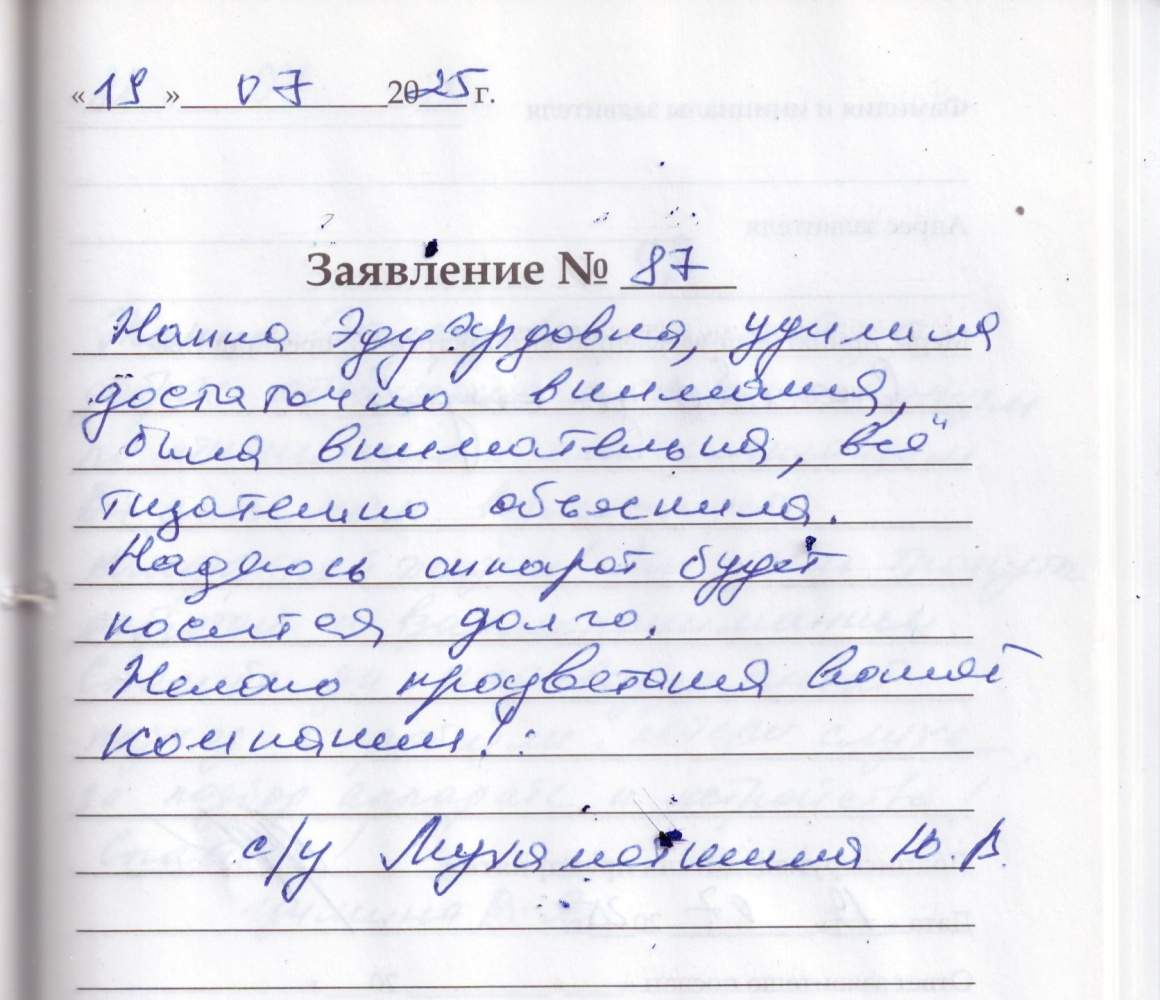 «19» 07 2025 г.
Заявление № 87
Нанна Эдуэрдовна, уделила
достаточно внимания,
была внимательна, всё
тщательно объяснила.
Надеюсь аппарат будет
носится долго.
Желаю процветания вашей
компании!
с/у Мухаметшина Ю.В.